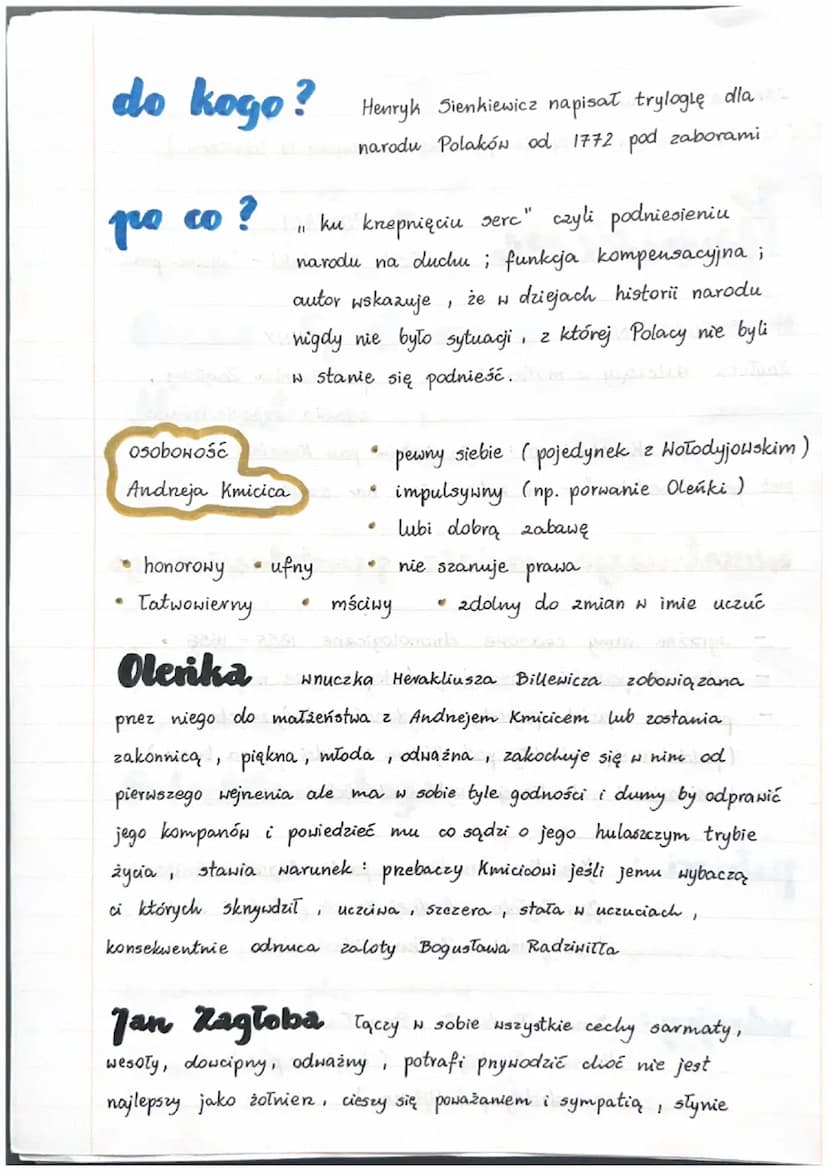 do kogo?
Henryk Sienkiewicz napisał trylogię dla
narodu Polaków od 1772 pod zaborami
po co?
„ku krzepnięciu serc" czyli podniesieniu
narodu na duchu ; funkcja kompensacyjna ;
autor wskazuje , że w dziejach historii narodu
nigdy nie było sytuacji , z której Polacy nie byli
w stanie się podnieść .
osobowość
Andrzeja Kmicica
• pewny siebie ( pojedynek z Wołodyjowskim )
• impulsywny ( np. porwanie Oleńki )
• lubi dobrą zabawę
• honorowy • ufny • nie szanuje prawa
• łatwowierny • mściwy • zdolny do zmian w imie uczuć
Oleńka wnuczka Herakliusza Billewicza zobowiązana
przez niego do małżeństwa z Andrzejem Kmicicem lub zostania
zakonnicą , piękna , młoda , odważna , zakochuje się w nim od
pierwszego wejrzenia ale ma w sobie tyle godności i dumy by odprawić
jego kompanów i powiedzieć mu co sądzi o jego hulaszczym trybie
życia , stawia warunek : przebaczy Kmicicowi jeśli jemu wybaczą
ci których skrzywdził , uczciwa , szczera , stała w uczuciach ,
konsekwentnie odrzuca zaloty Bogusława Radziwiłła
Jan Zagłoba łączy w sobie wszystkie cechy sarmaty ,
wesoły, dowcipny, odważny , potrafi przywodzić choć nie jest
najlepszy jako żołnierz , cieszy się poważaniem i sympatią , słynie